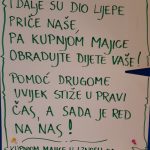 I DALJE SU DIO LJEPE
PRIČE NAŠE,
PA KUPNJOM MAJICE
OBRADUJTE DIJETE VAŠE!
POMOĆ DRUGOME
UVIJEK STIŽE U PRAVI
ČAS, A SADA JE RED
NA NAS!
KUPNJOM MAJICE U